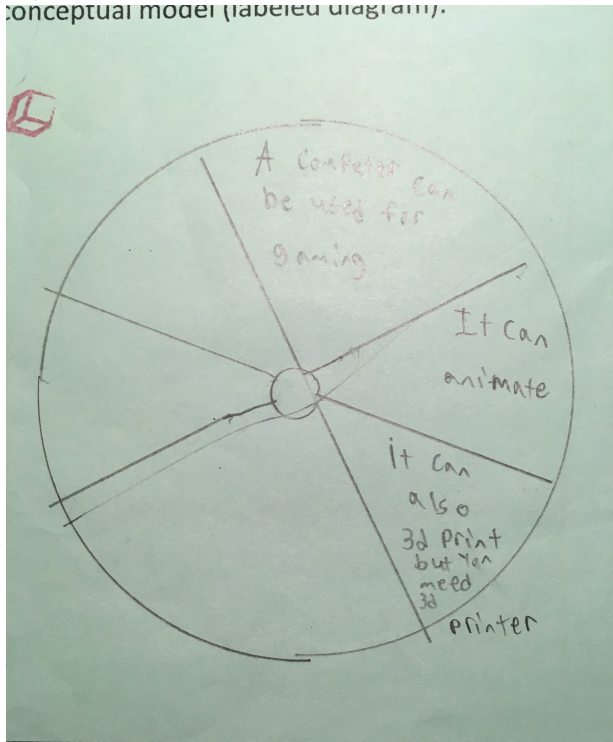 conceptual model (labeled diagram).
A Computer can
be used for
gaming
It can
animate
it can
also
3d print
but you
need
3d
printer